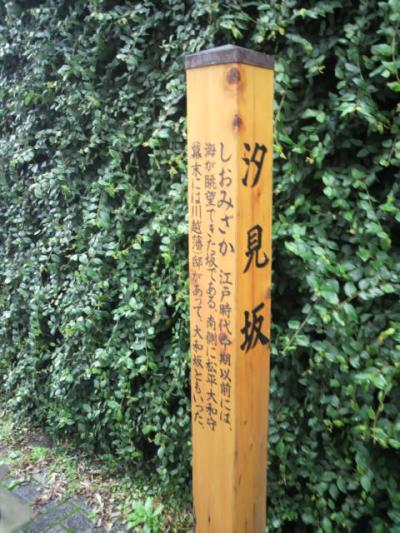 汐見坂
しおみざか 江戸時代中期以前には、
海が眺望できた坂である。南側に松平大和守
幕末には川越藩邸があって、大和坂ともいった。